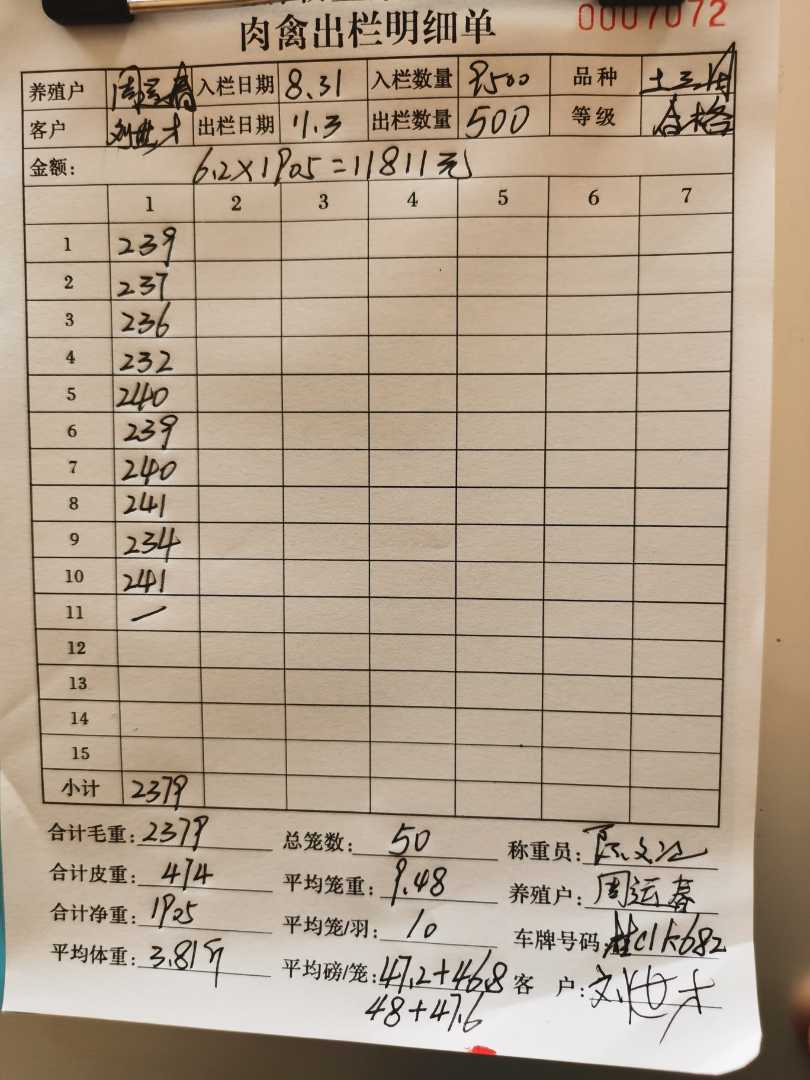 肉禽出栏明细单
0007072
养殖户 周运春 入栏日期 8.31 入栏数量 9500 品种 土三
客户 刘世才 出栏日期 11.3 出栏数量 500 等级 合格
金额: 6.2×1905=11811元
1 2 3 4 5 6 7
1 239
2 237
3 236
4 232
5 240
6 239
7 240
8 241
9 234
10 241
11 一
12
13
14
15
小计 2379
合计毛重: 2379 总笼数: 50 称重员:
合计皮重: 474 平均笼重: 9.48 养殖户: 周运春
合计净重: 1905 平均笼/羽: 10 车牌号码 桂C1K682
平均体重: 3.81斤 平均磅/笼: 47.2+46.8 客 户: 刘世才
48+47.6